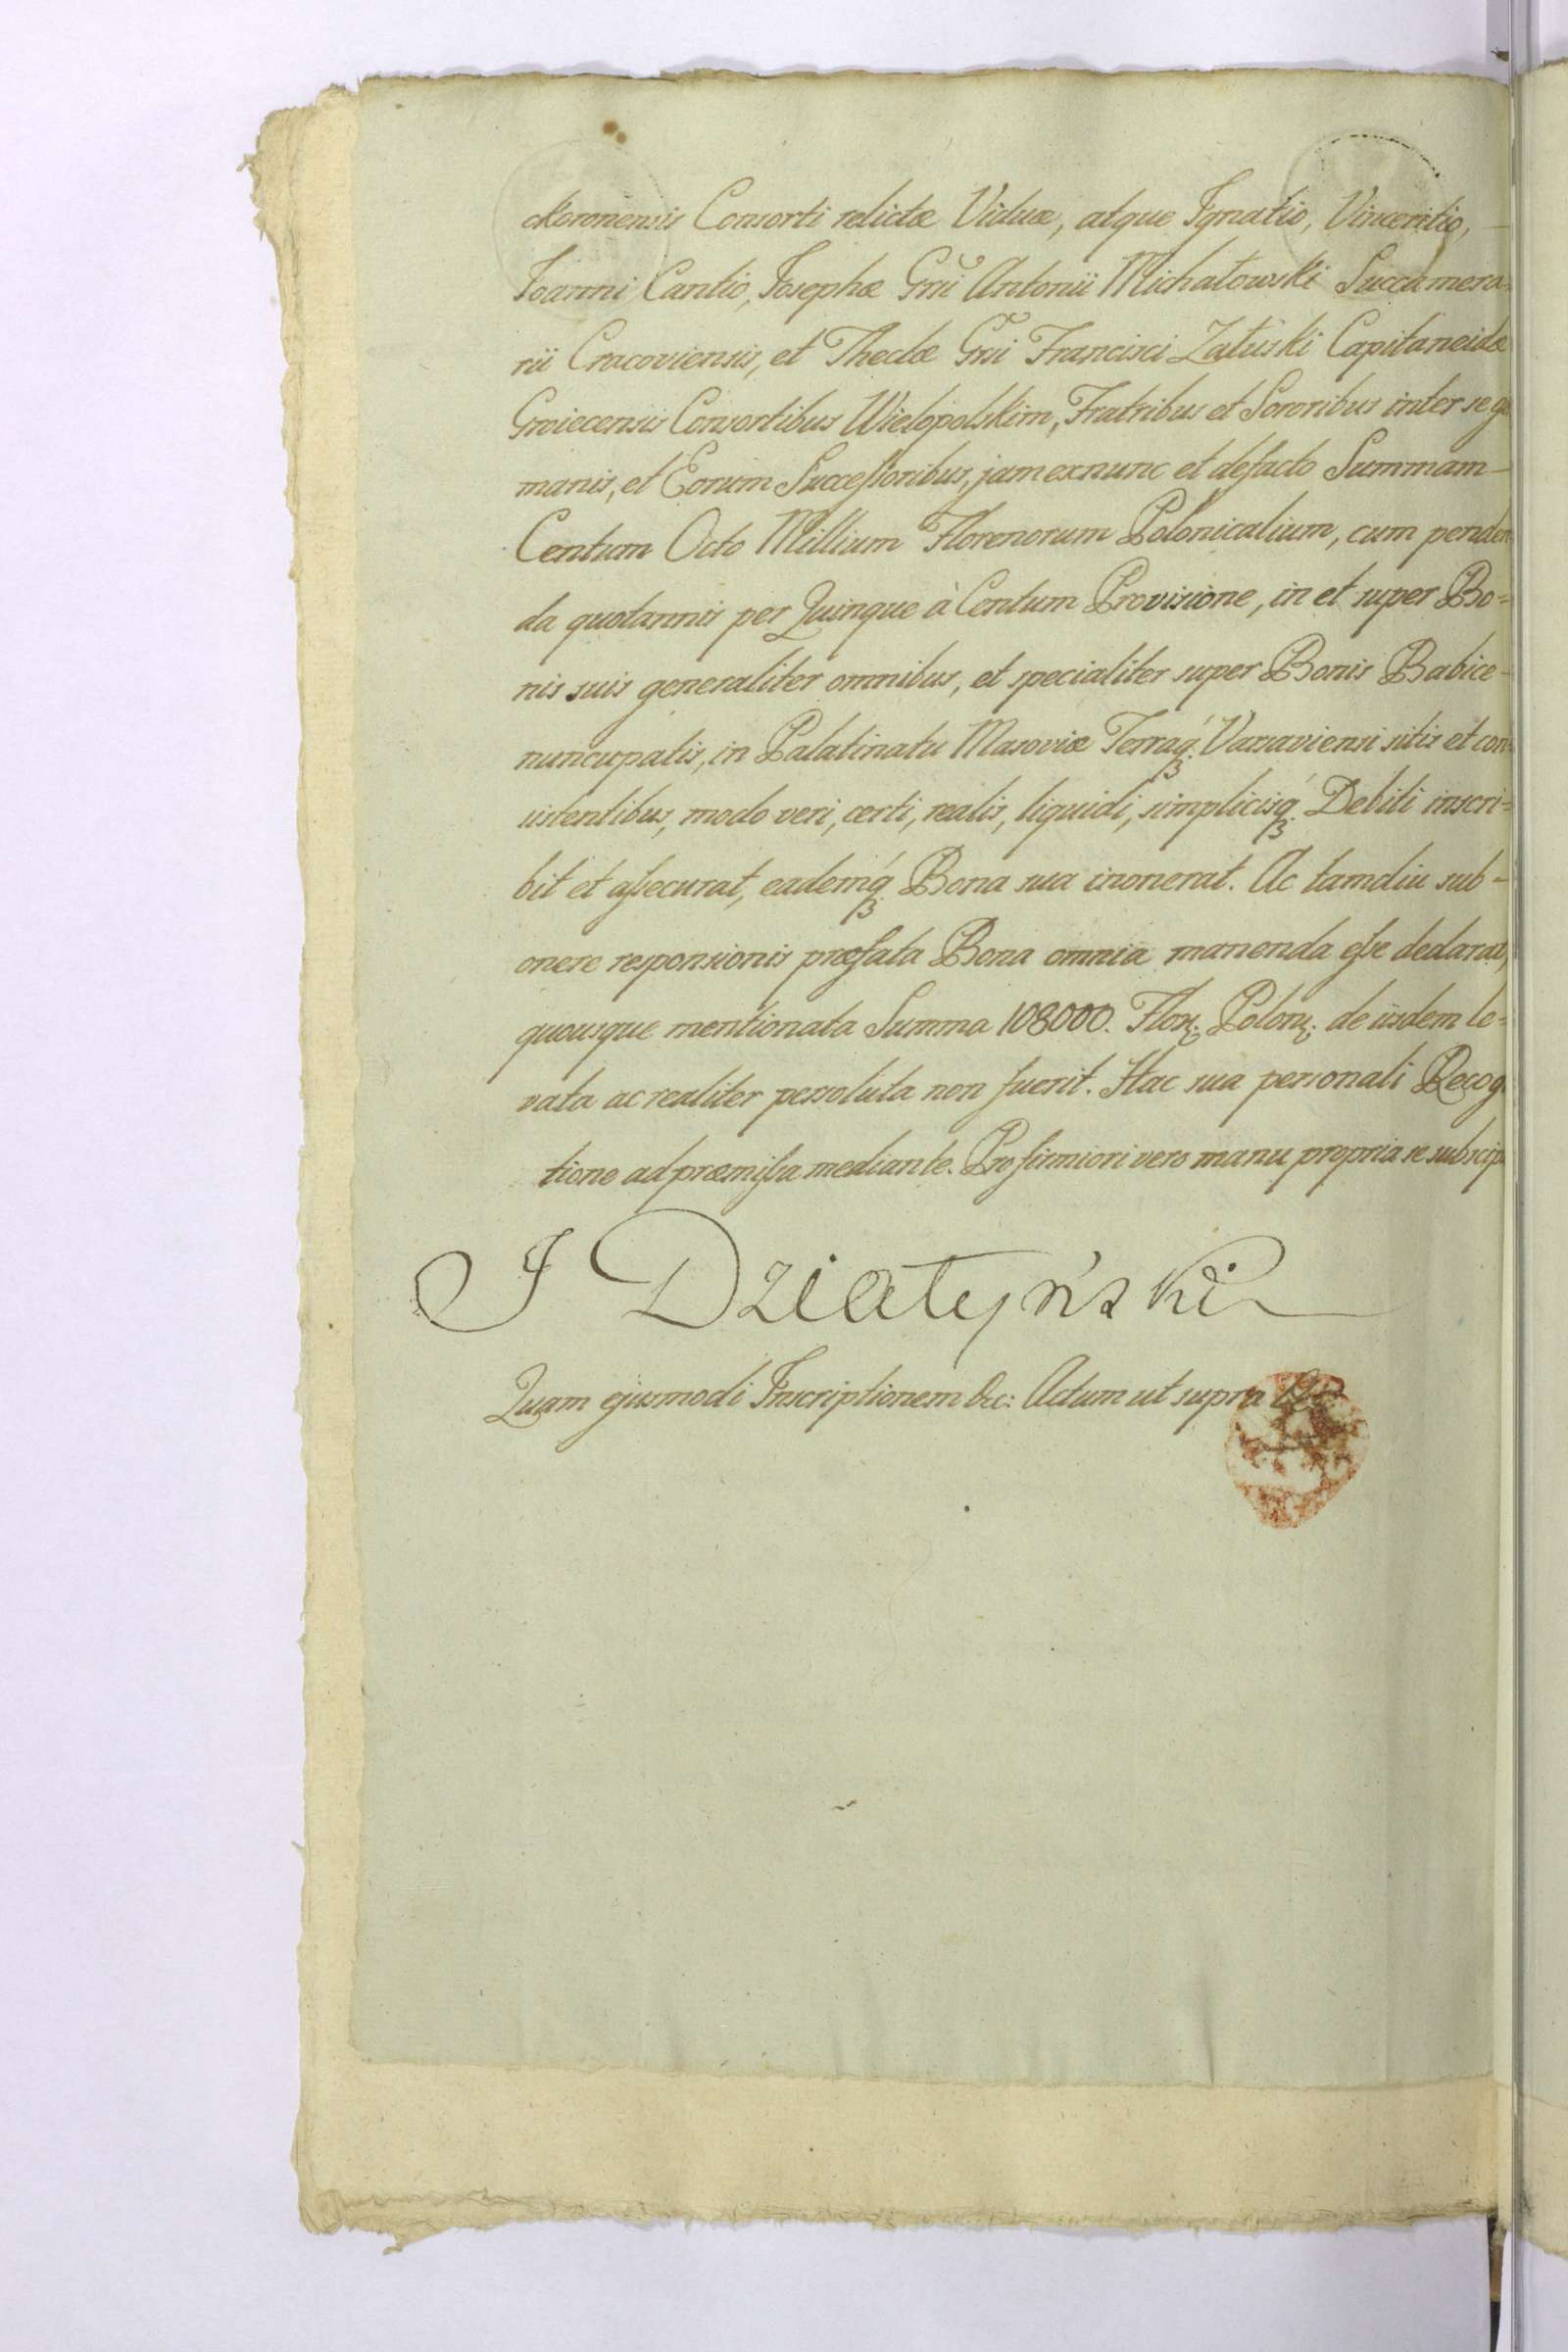 ckoronensis Consorti relictæ Viduæ, atque Ignatio, Vincentio, -
Joanni Cantio, Josephæ Grsi Antonii Michałowski Succamera=
rii Cracoviensis, et Theclæ Grsi Francisci Załuski Capitaneidæ
Groiecensis Consortibus Wielopolskim, Fratribus et Sororibus inter se ge
manis, et Eorum Successoribus, jam exnunc et defacto Summam -
Centum Octo Millium Florenorum Polonicalium, cum penden
da quotannis per Quinque à Centum Provisione, in et super Bo=
nis suis generaliter omnibus, et specialiter super Bonis Babice -
nuncupatis, in Palatinatu Masoviæ Terraq́ꝫ Varsaviensi sitis et con=
sistentibus, modo veri, certi, realis, liquidi, simplicisq́ꝫ Debiti inscri=
bit et assecurat, eademq́ꝫ Bona sua inonerat. Ac tamdiu sub -
onere responsionis præfata Bona omnia manenda esse declarat,
quousque mentionata Summa 108000. Flor: Polon: de iisdem le=
vata ac realiter persoluta non fuerit. Hac sua personali Recog
tione ad præmissa mediante. Pro firmiori vero manu propria se subscip
J Działyński
Quam ejusmodi Inscriptionem &c: Actum ut supra